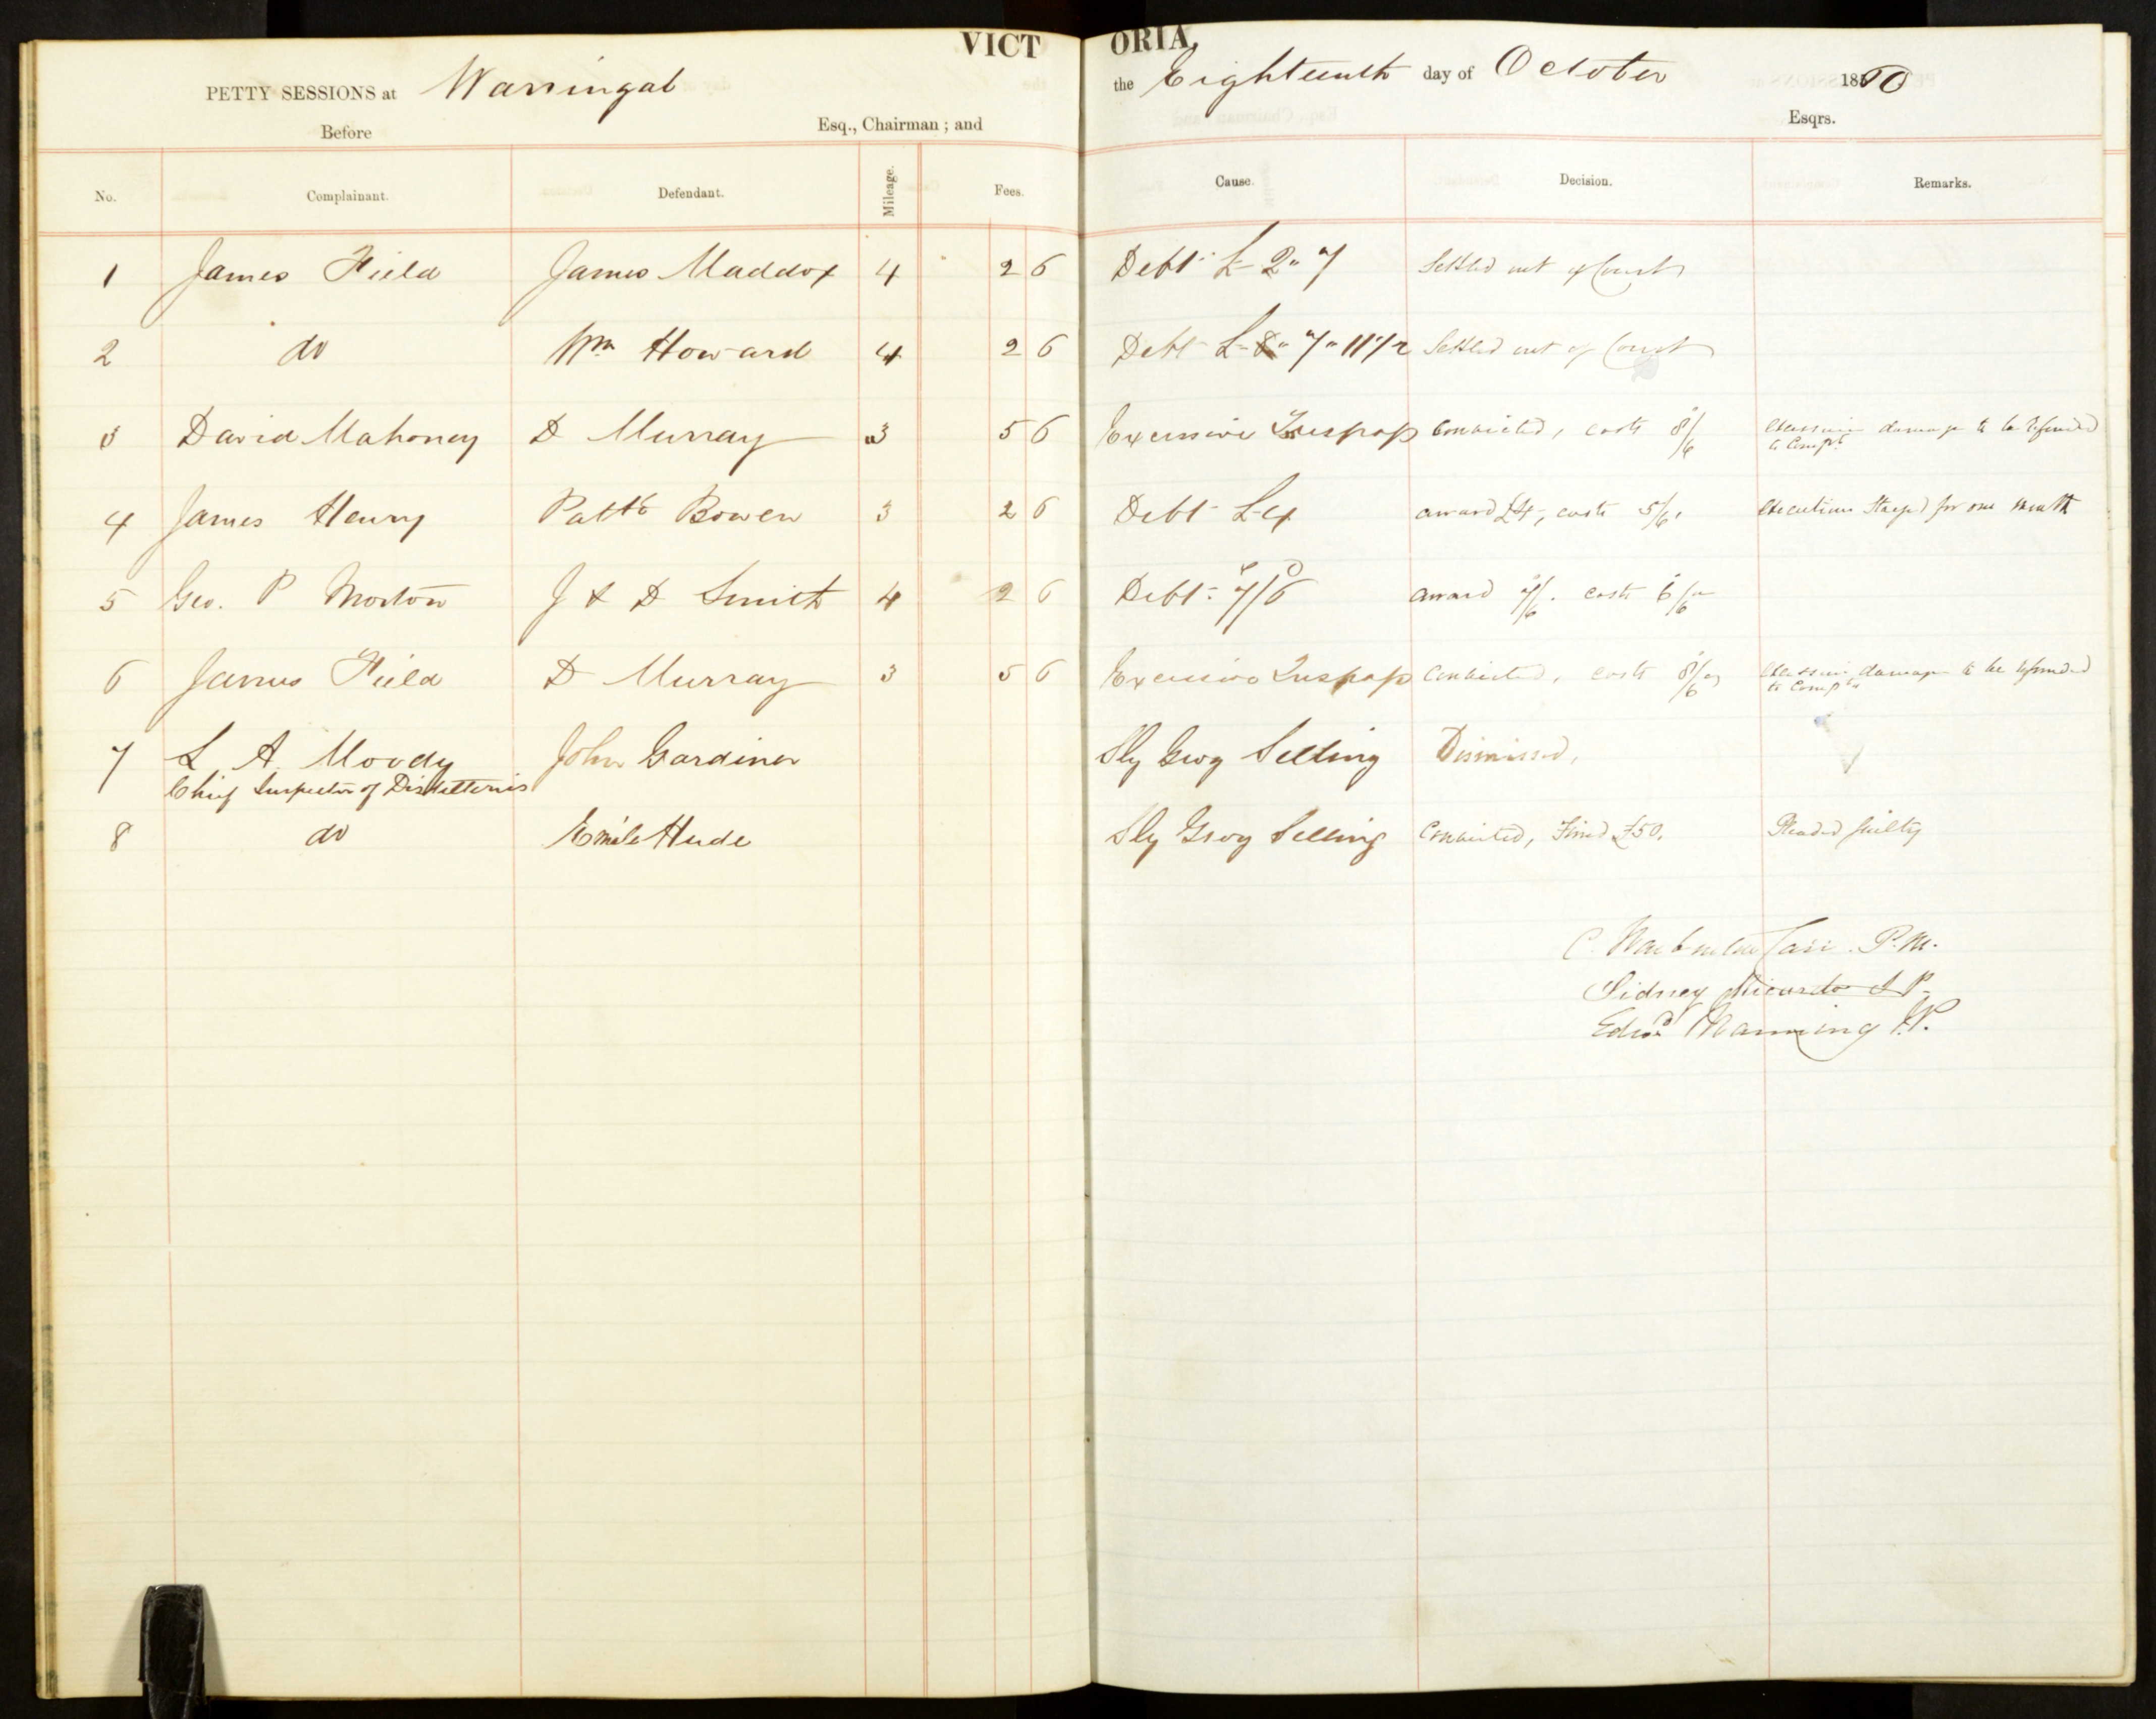 VICTORIA,
PETTY SESSIONS at Warringal the Eighteenth day of October 1860
Before Esq., Chairman; and Esqrs.
No. Complainant. Defendant. Mileage. Fees. Cause. Decision. Remarks.
1 James Field James Maddox 4 2 6 Debt £2" 7 Settled out of Court
2 do Wm Howard 4 2 6 Debt £ 7" 11 1/2 Settled out of Court
3 David Mahoney D Murray 3 5 6 Excessive Tresspass Convicted, costs 8/6 Excessive damage to be refunded
to Compt
4 James Henry Patk Bowen 3 2 6 Debt £4 award £4, costs 5/6. Execution Stayed for one month
5 Geo. P Morton J & D Smith 4 2 6 Debt 7/6 award 7/6. costs 6/6
6 James Field D Murray 3 5 6 Excessive Trespass Convicted, costs 8/6 Excessive damage to be refunded
to Compt
7 L A. Moody John Gardiner Sly Grog Selling Dismissed,
Chief Inspector of Distilleries
8 do Emile Hude Sly Grog Selling Convicted, Fined £50. Pleaded guilty
C. Warburton Carr. P.M.
Sidney Ricardo J.P.
Edwd Manning J.P.